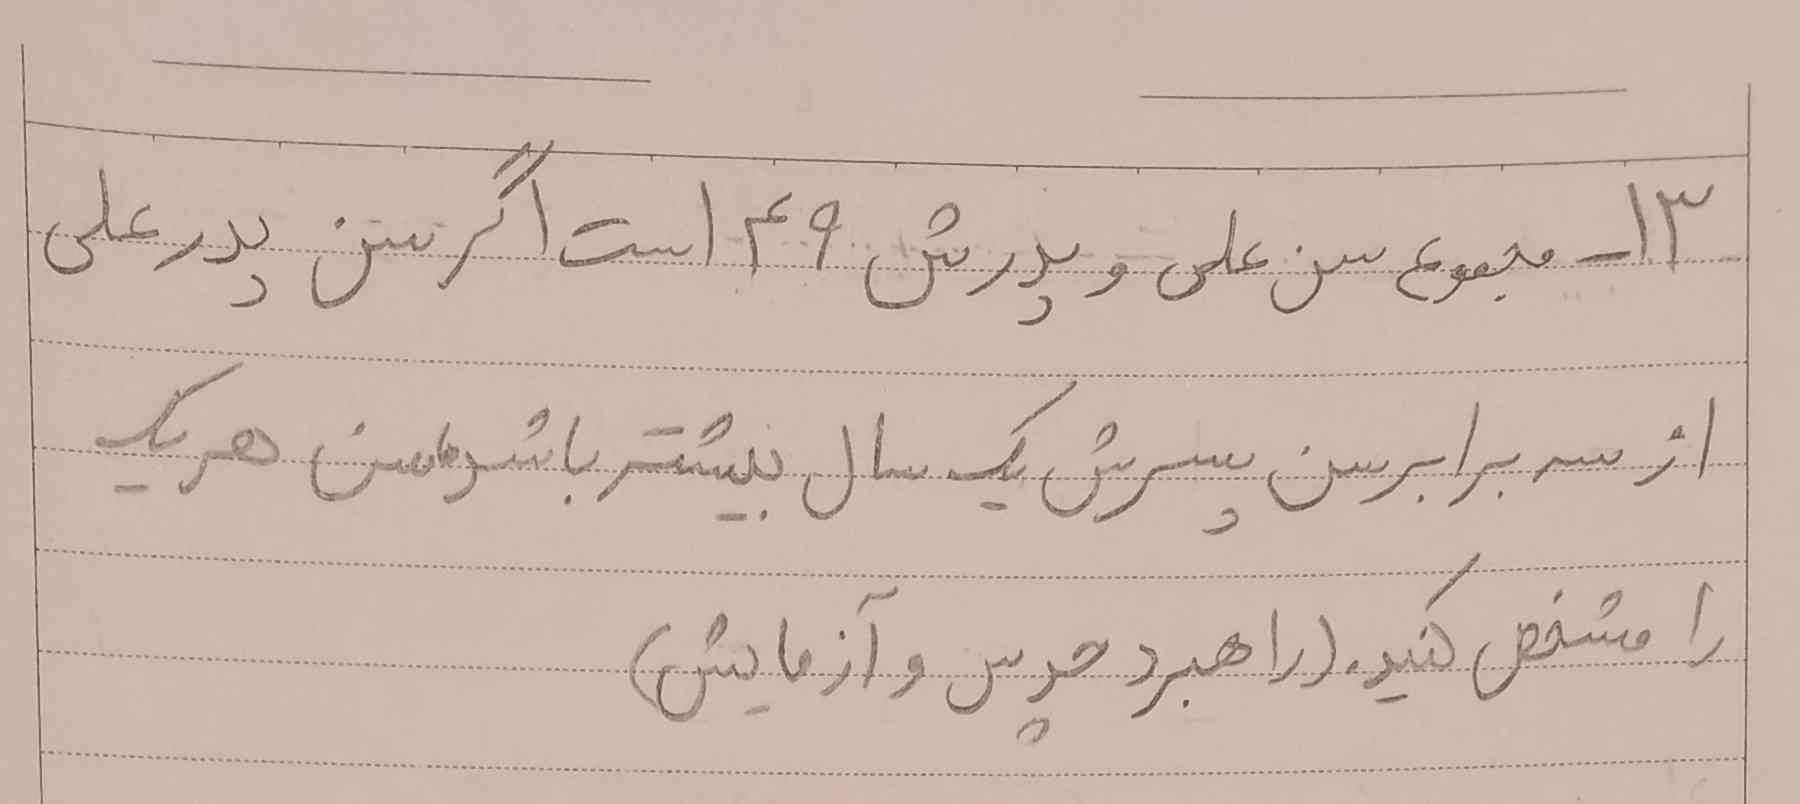 ۱۳- مجموع سن علی و پدرش ۴۹ است اگر سن پدر علی
از سه برابر سن پسرش یک سال بیشتر باشد سن هر یک
را مشخص کنید. (راهبرد حدس و آزمایش)